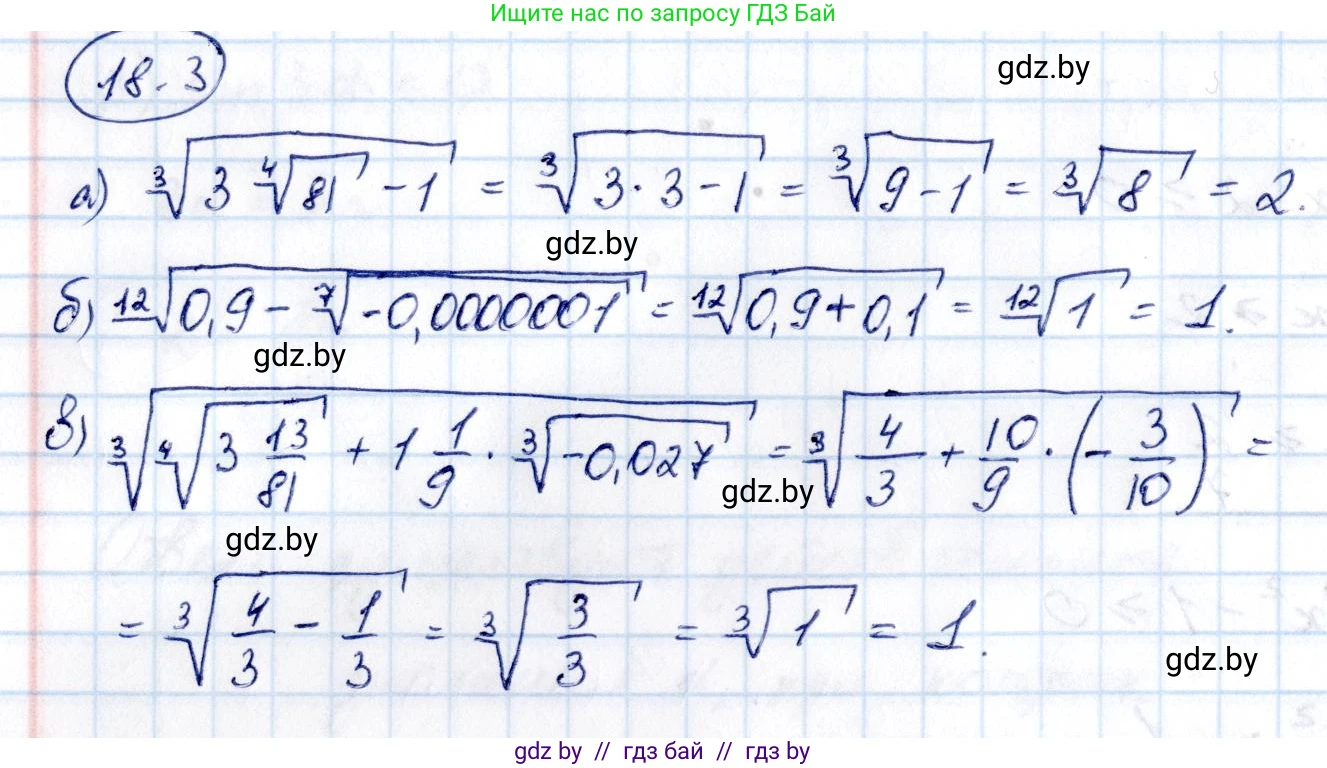 Ищите нас по запросу ГДЗ Бай
18.3
gdz.by
а) ∛(3 ∜81 - 1) = ∛(3·3-1) = ∛(9-1) = ∛8 = 2.
gdz.by
б) ¹²√(0,9 - ⁷√(-0,0000001)) = ¹²√(0,9+0,1) = ¹²√1 = 1.
gdz.by
в) ∛(∜(3 13/81) + 1 1/9 · ∛(-0,027)) = ∛(4/3 + 10/9 · (-3/10)) =
gdz.by
gdz.by
= ∛(4/3 - 1/3) = ∛(3/3) = ∛1 = 1.
gdz.by
gdz by // гдз бай // гдз by